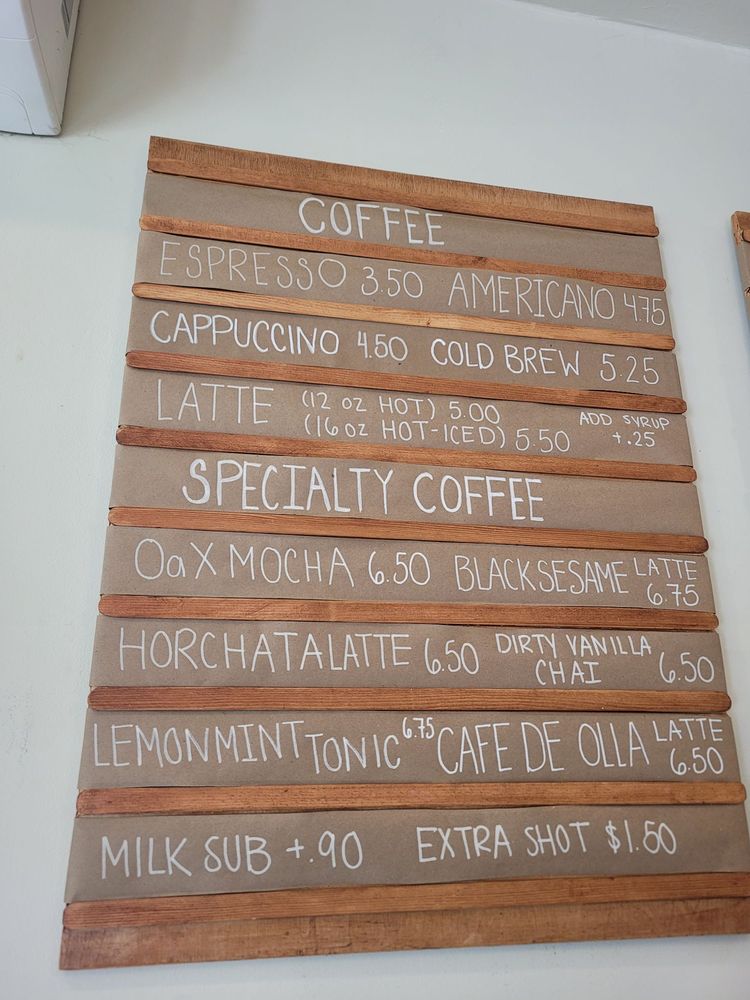 COFFEE
ESPRESSO 3.50 AMERICANO 4.75
CAPPUCCINO 4.50 COLD BREW 5.25
LATTE (12 oz HOT) 5.00
(16 oz HOT-ICED) 5.50
ADD SYRUP
+.25
SPECIALTY COFFEE
OaX MOCHA 6.50 BLACK SESAME LATTE 6.75
HORCHATA LATTE 6.50 DIRTY VANILLA CHAI 6.50
LEMON MINT TONIC 6.75 CAFE DE OLLA LATTE 6.50
MILK SUB +.90 EXTRA SHOT $1.50